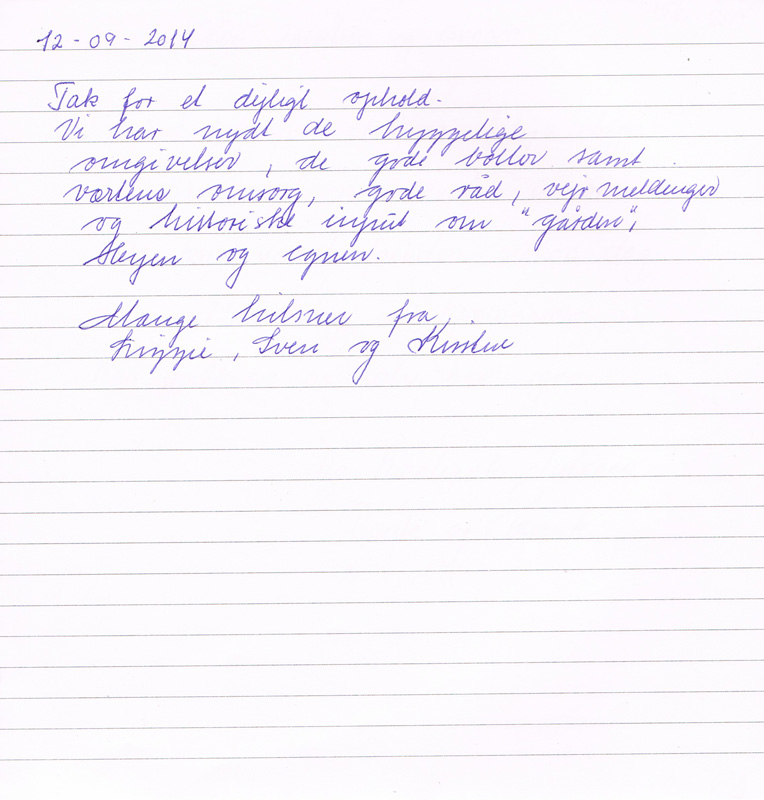 12-09-2014
Tak for et dejligt ophold.
Vi har nydt de hyggelige
omgivelser, de gode boller samt
værtens omsorg, gode råd, vejrmeldinger
og historiske input om "gården",
og egnen.
Mange hilsner fra
, Sven og Kirsten